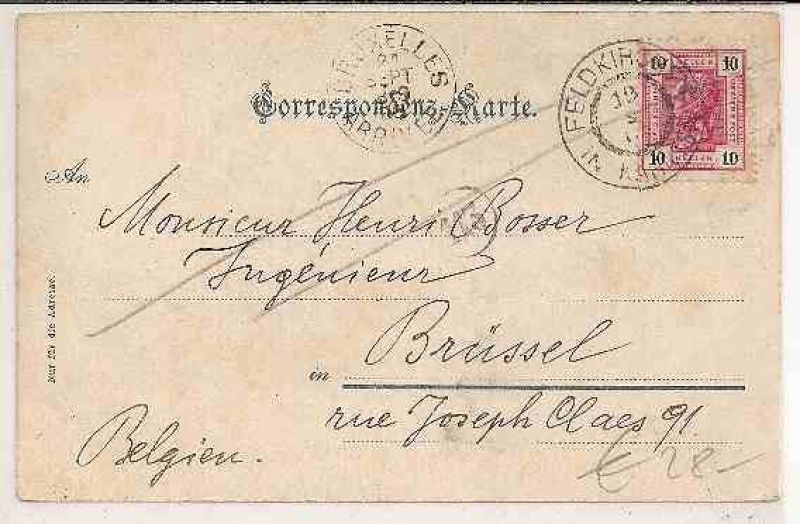 BRUXELLES
SEPT
Correspondenz-Karte.
FELDKIRCH
IN
10 HELLER 10
10 HELLER 10
An
Monsieur Henri Bosser
Ingénieur
Nur für die Adresse.
Brüssel
in
rue Joseph Claes 91.
Belgien.
€ 28-